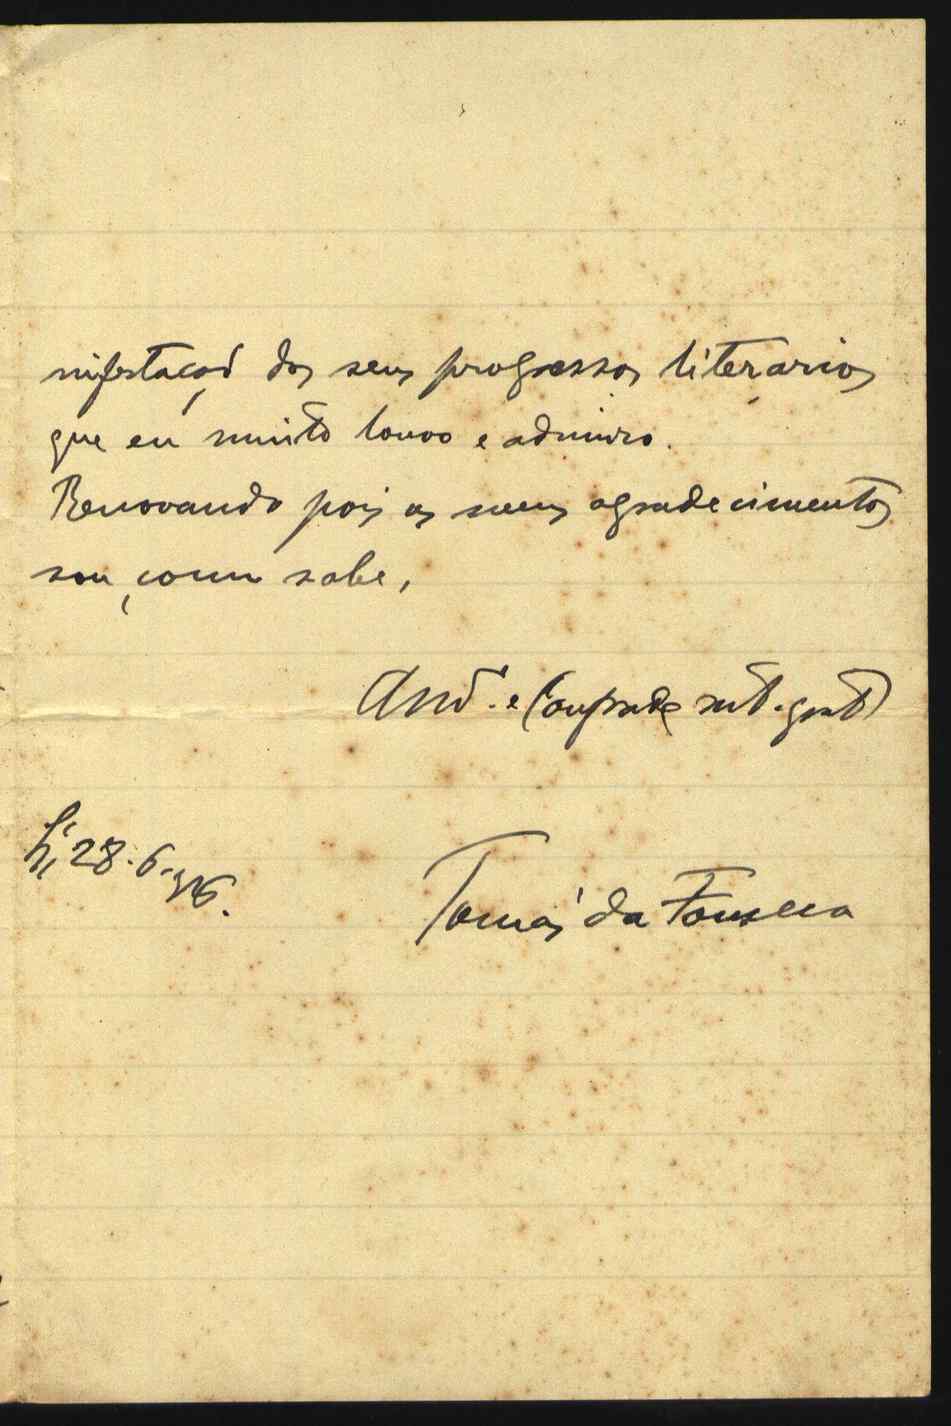 nifestação dos seus progressos literarios
que eu muito louvo e admiro.
Renovando pois os meus agradecimentos
sou, como sabe,
Amº. e Confrade mtº. gratº
28-6-
Tomás da Fonseca